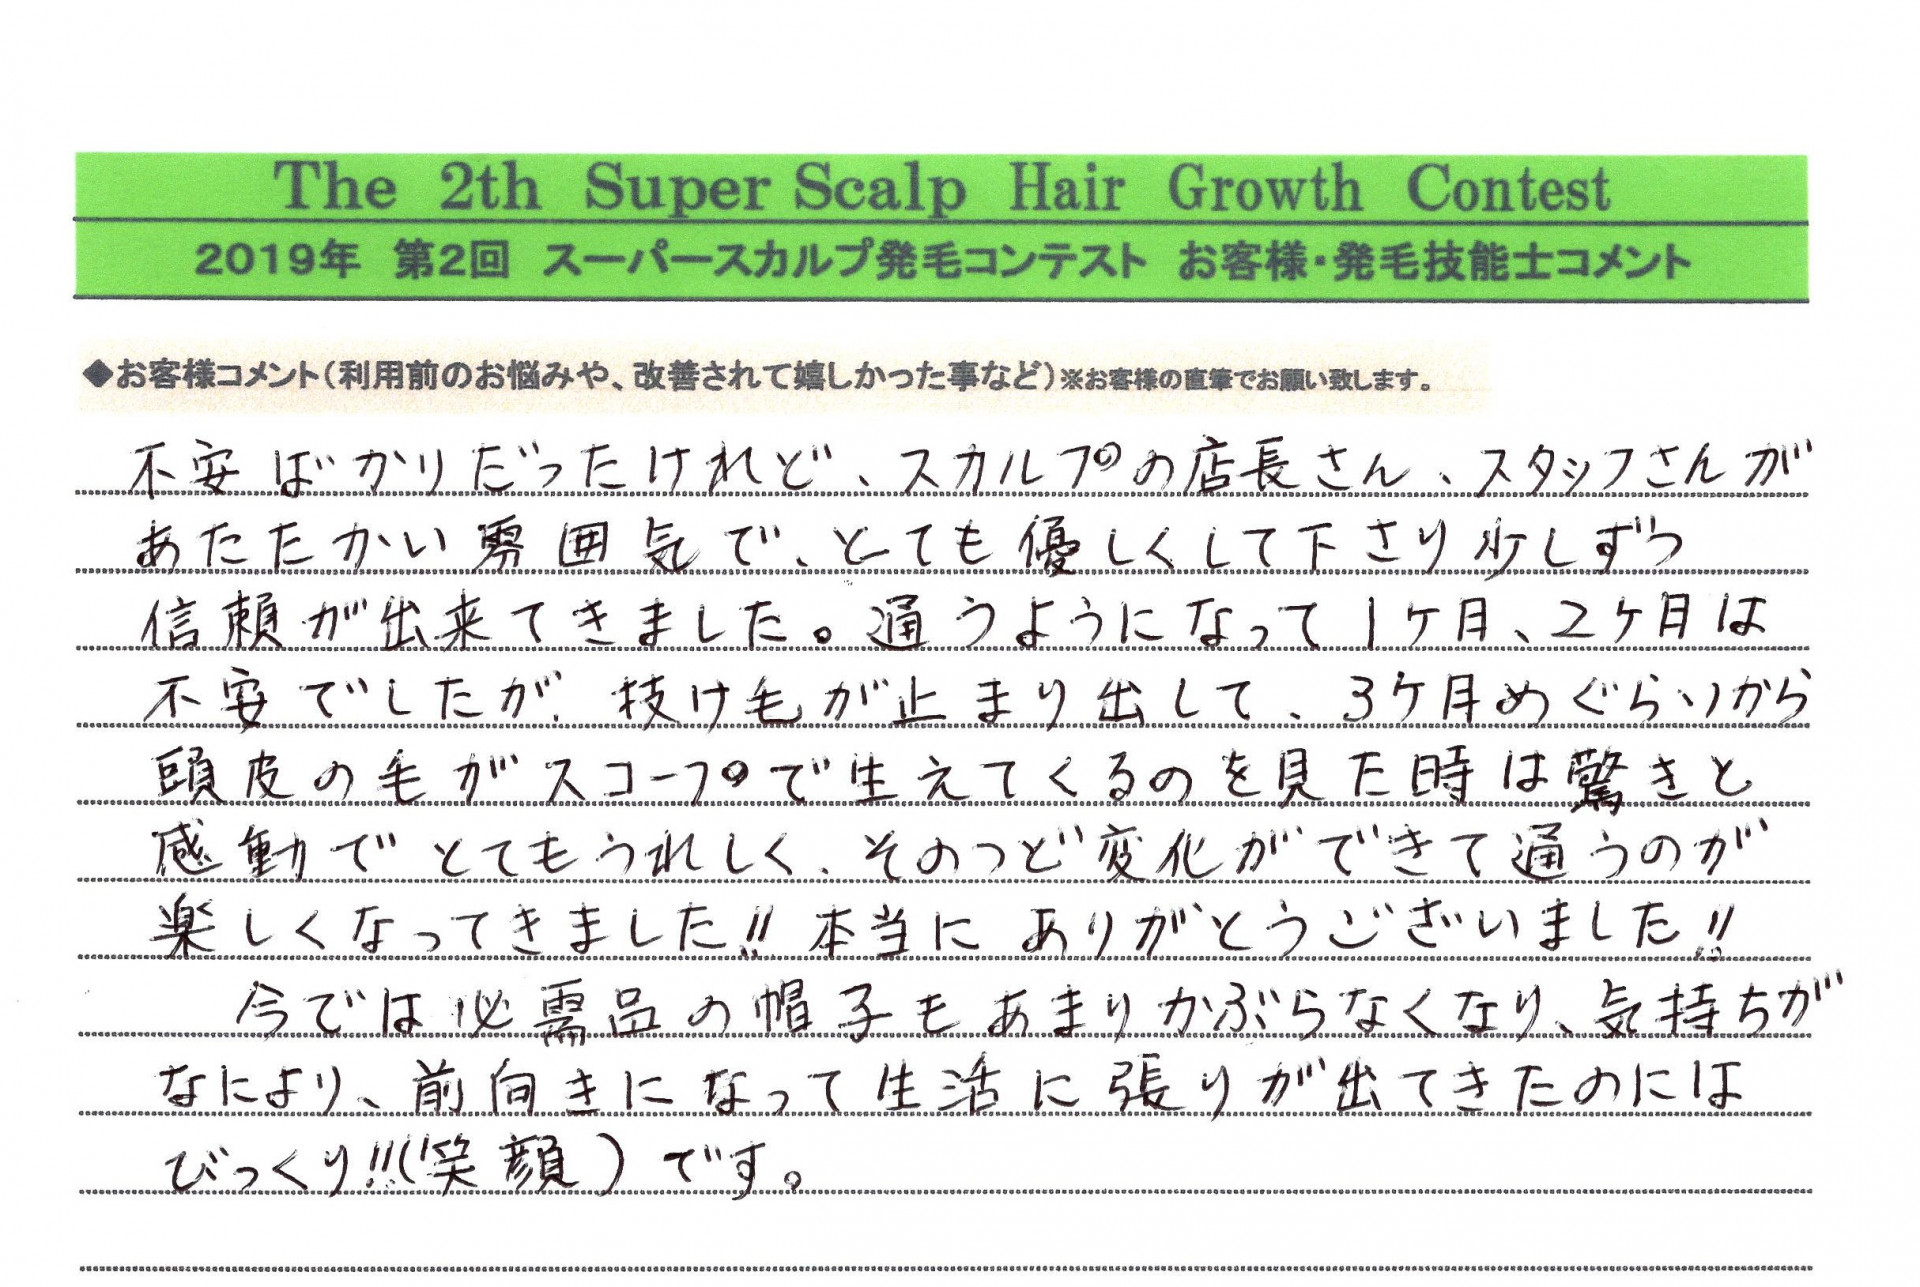 The 2th Super Scalp Hair Growth Contest
2019年 第2回 スーパースカルプ発毛コンテスト お客様・発毛技能士コメント
◆お客様コメント（利用前のお悩みや、改善されて嬉しかった事など）※お客様の直筆でお願い致します。
不安ばかりだったけれど、スカルプの店長さん、スタッフさんが
あたたかい雰囲気で、とても優しくして下さり少しずつ
信頼が出来てきました。通うようになって1ケ月、2ケ月は
不安でしたが、抜け毛が止まり出して、3ケ月めぐらいから
頭皮の毛がスコープで生えてくるのを見た時は驚きと
感動でとてもうれしく、そのつど変化ができて通うのが
楽しくなってきました!! 本当にありがとうございました!!
今では必需品の帽子もあまりかぶらなくなり、気持ちが
なにより、前向きになって生活に張りが出てきたのには
びっくり!!(笑顔)です。